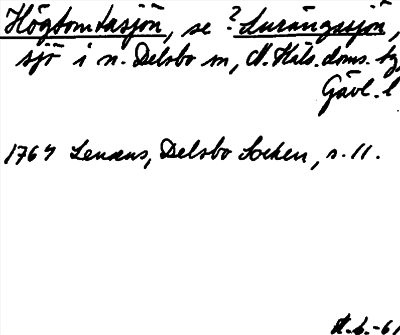 Högtomtasjön, se ? Lurängssjön,
sjö i n. Delsbo sn, N. Häls. doms. 
Gävl. l
1764 Lenæus, Delsbo Socken, s. 11.